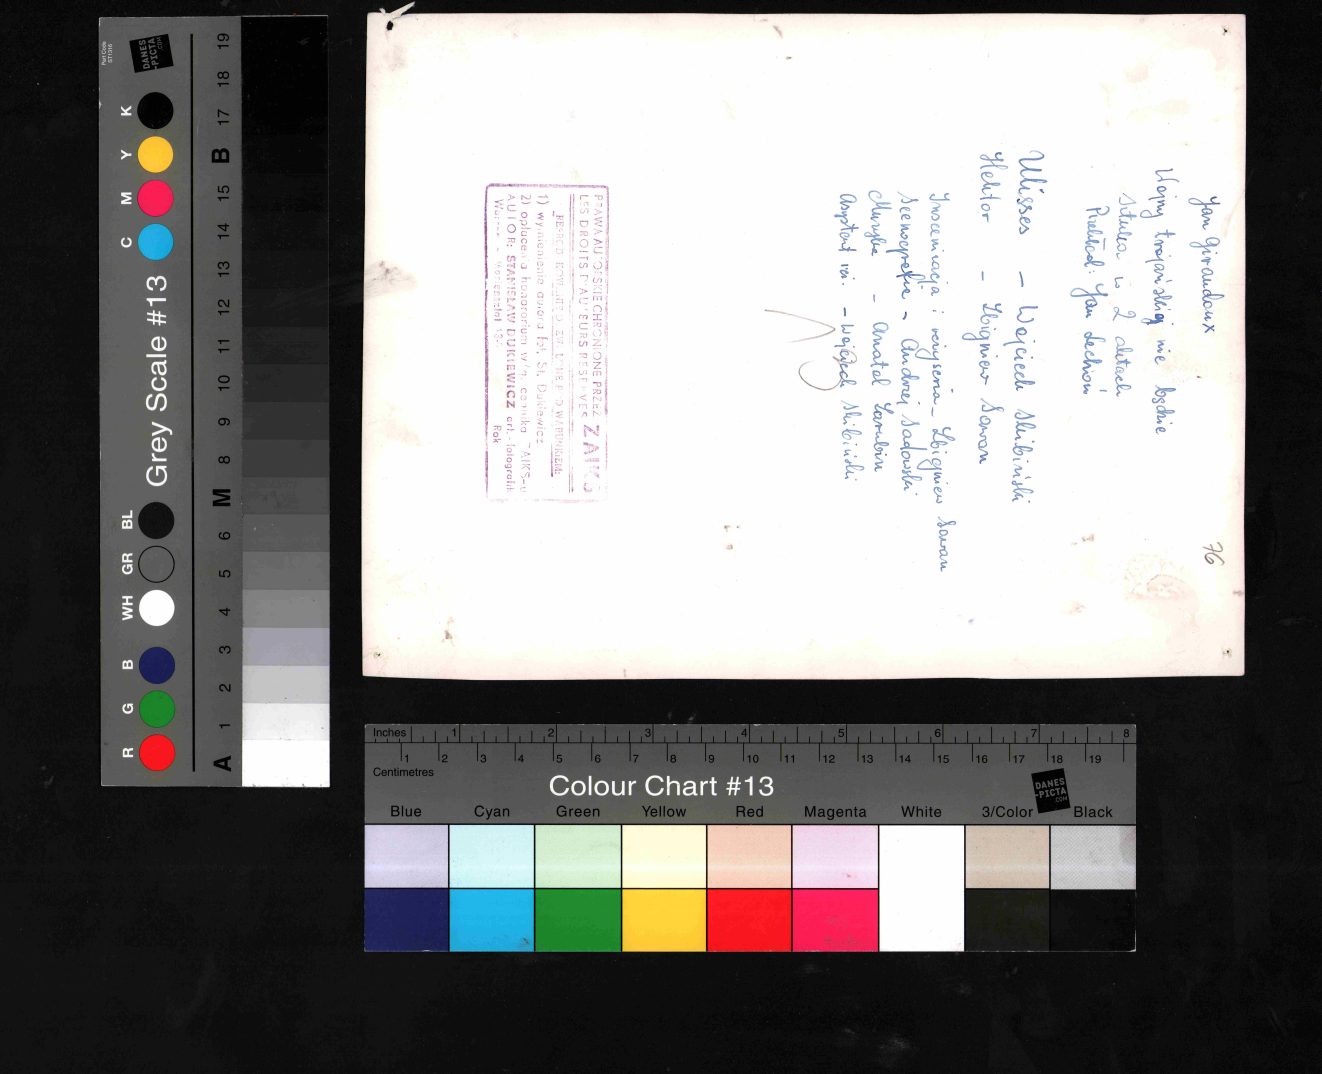 Jan Giraudoux
76
Wojny trojańskiej nie będzie
sztuka w 2 aktach
Przekład: Jan Lechoń
Ulisses — Wojciech Skibiński
Hektor — Zbigniew Sawan
Inscenizacja i reżyseria – Zbigniew Sawan
Scenografia – Andrzej Sadowski
Muzyka – Anatol Zarubin
Asystent reż. – Wojciech Skibiński
PRAWA AUTORSKIE CHRONIONE PRZEZ ZAIKS
LES DROITS D'AUTEURS RESERVES
1) wymienienie autora fot. St. Dukiewicz
2) opłacenia honorarium w/g cennika ZAIKS-u
AUTOR: STANISŁAW DUKIEWICZ art.-fotografik
Rok
Part Code
ST1316
DANES
-PICTA
.COM
Grey Scale #13
R G B WH GR BL C M Y K
A 1 2 3 4 5 6 M 8 9 10 11 12 13 14 15 B 17 18 19
Inches 1 2 3 4 5 6 7 8
1 2 3 4 5 6 7 8 9 10 11 12 13 14 15 16 17 18 19
Centimetres
Colour Chart #13
DANES
-PICTA
.COM
Blue Cyan Green Yellow Red Magenta White 3/Color Black